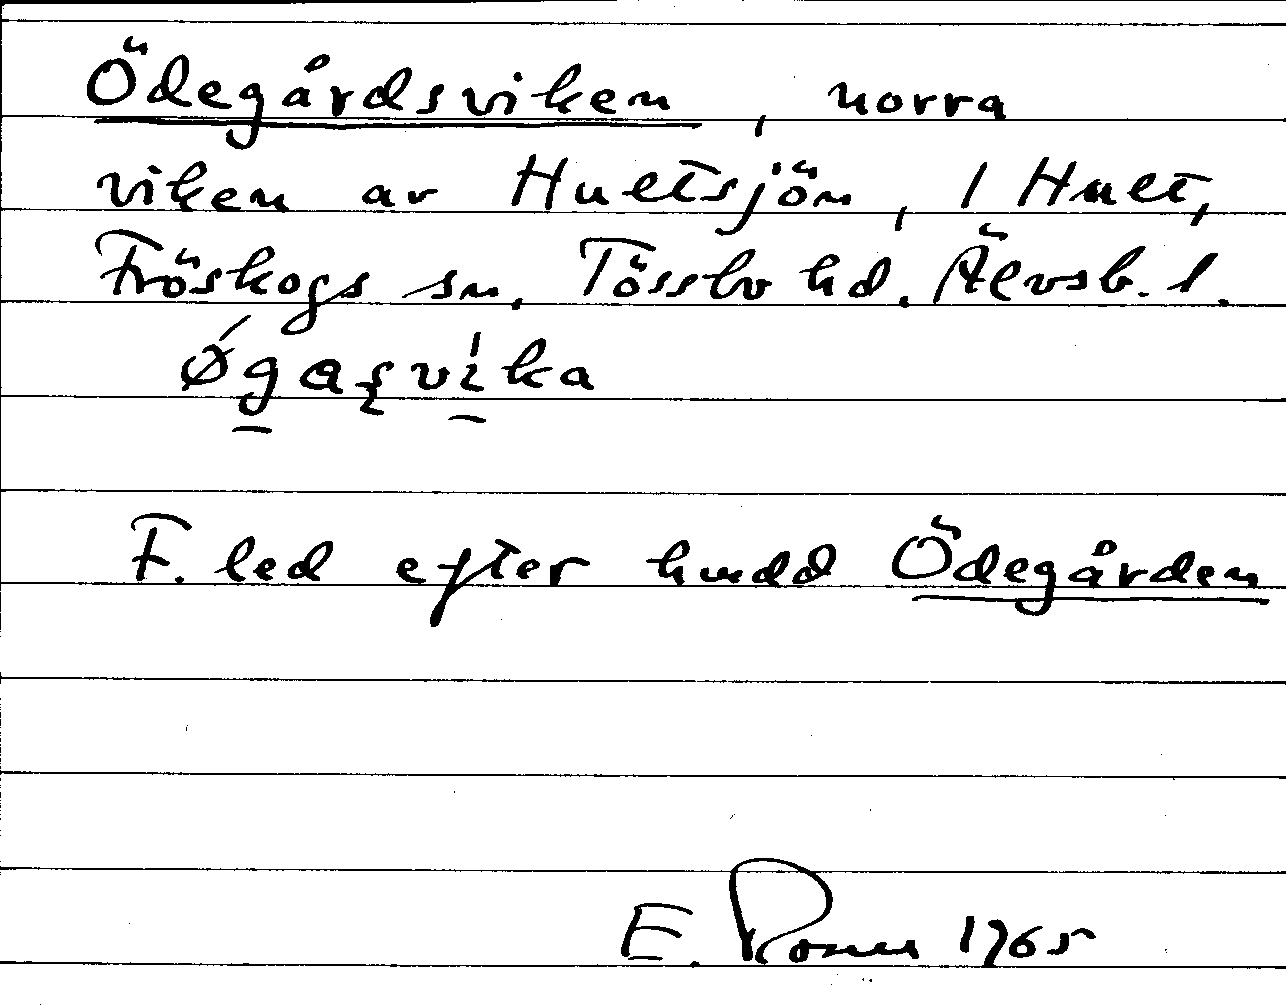 Ödegårdsviken, norra
viken av Hultsjön, 1 Hult,
Fröskogs sn, Tössbo hd. Älvsb. l.
Øgasvika
F. led efter hmdd Ödegården
E. 1965